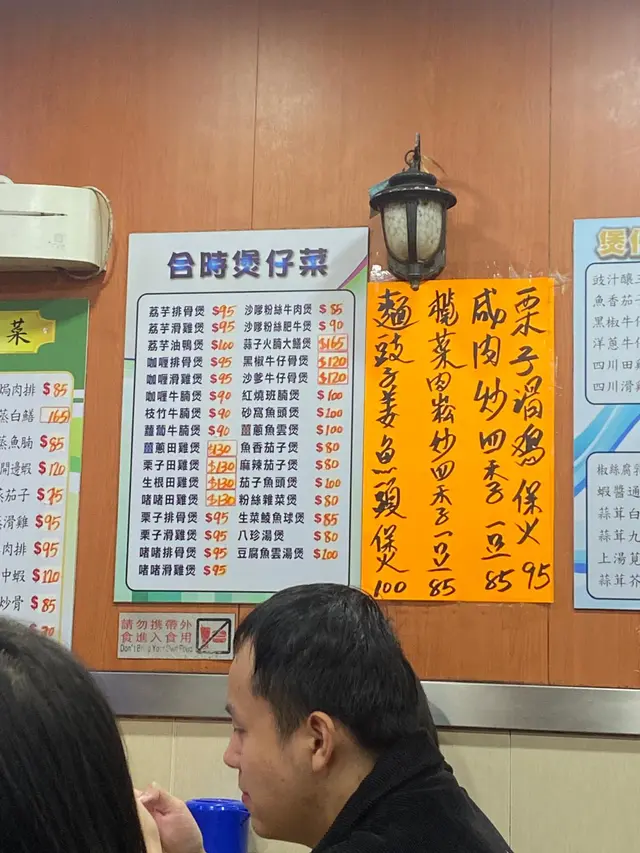 菜
焗肉排 $85
蒸白鱔 165
蒸魚腩 $85
開邊蝦 $120
蒸茄子 $75
蒸滑雞 $95
肉排 $95
中蝦 $120
炒骨 $85
合時煲仔菜
荔芋排骨煲 $95
荔芋滑雞煲 $95
荔芋油鴨煲 $100
咖喱排骨煲 $95
咖喱滑雞煲 $95
咖喱牛腩煲 $90
枝竹牛腩煲 $90
蘿蔔牛腩煲 $90
薑蔥田雞煲 $130
栗子田雞煲 $130
生根田雞煲 $130
啫啫田雞煲 $130
栗子排骨煲 $95
栗子滑雞煲 $95
啫啫排骨煲 $95
啫啫滑雞煲 $95
沙嗲粉絲牛肉煲 $85
沙嗲粉絲肥牛煲 $90
蒜子火腩大鱔煲 $165
黑椒牛仔骨煲 $120
沙爹牛仔骨煲 $120
紅燒班腩煲 $100
砂窩魚頭煲 $100
薑蔥魚雲煲 $100
魚香茄子煲 $80
麻辣茄子煲 $80
茄子魚頭煲 $100
粉絲雜菜煲 $80
生菜鯪魚球煲 $85
八珍湯煲 $80
豆腐魚雲湯煲 $100
栗子滑鸡煲 95
咸肉炒四季豆 85
欖菜肉崧炒四季豆 85
麵豉子姜魚頭煲 100
請勿攜帶外
食進入食用
煲仔
豉汁釀三
魚香茄
黑椒牛仔
洋蔥牛仔
四川田雞
四川滑雞
椒絲腐乳
蝦醬通
蒜茸白
蒜茸九
上湯莧
蒜茸芥